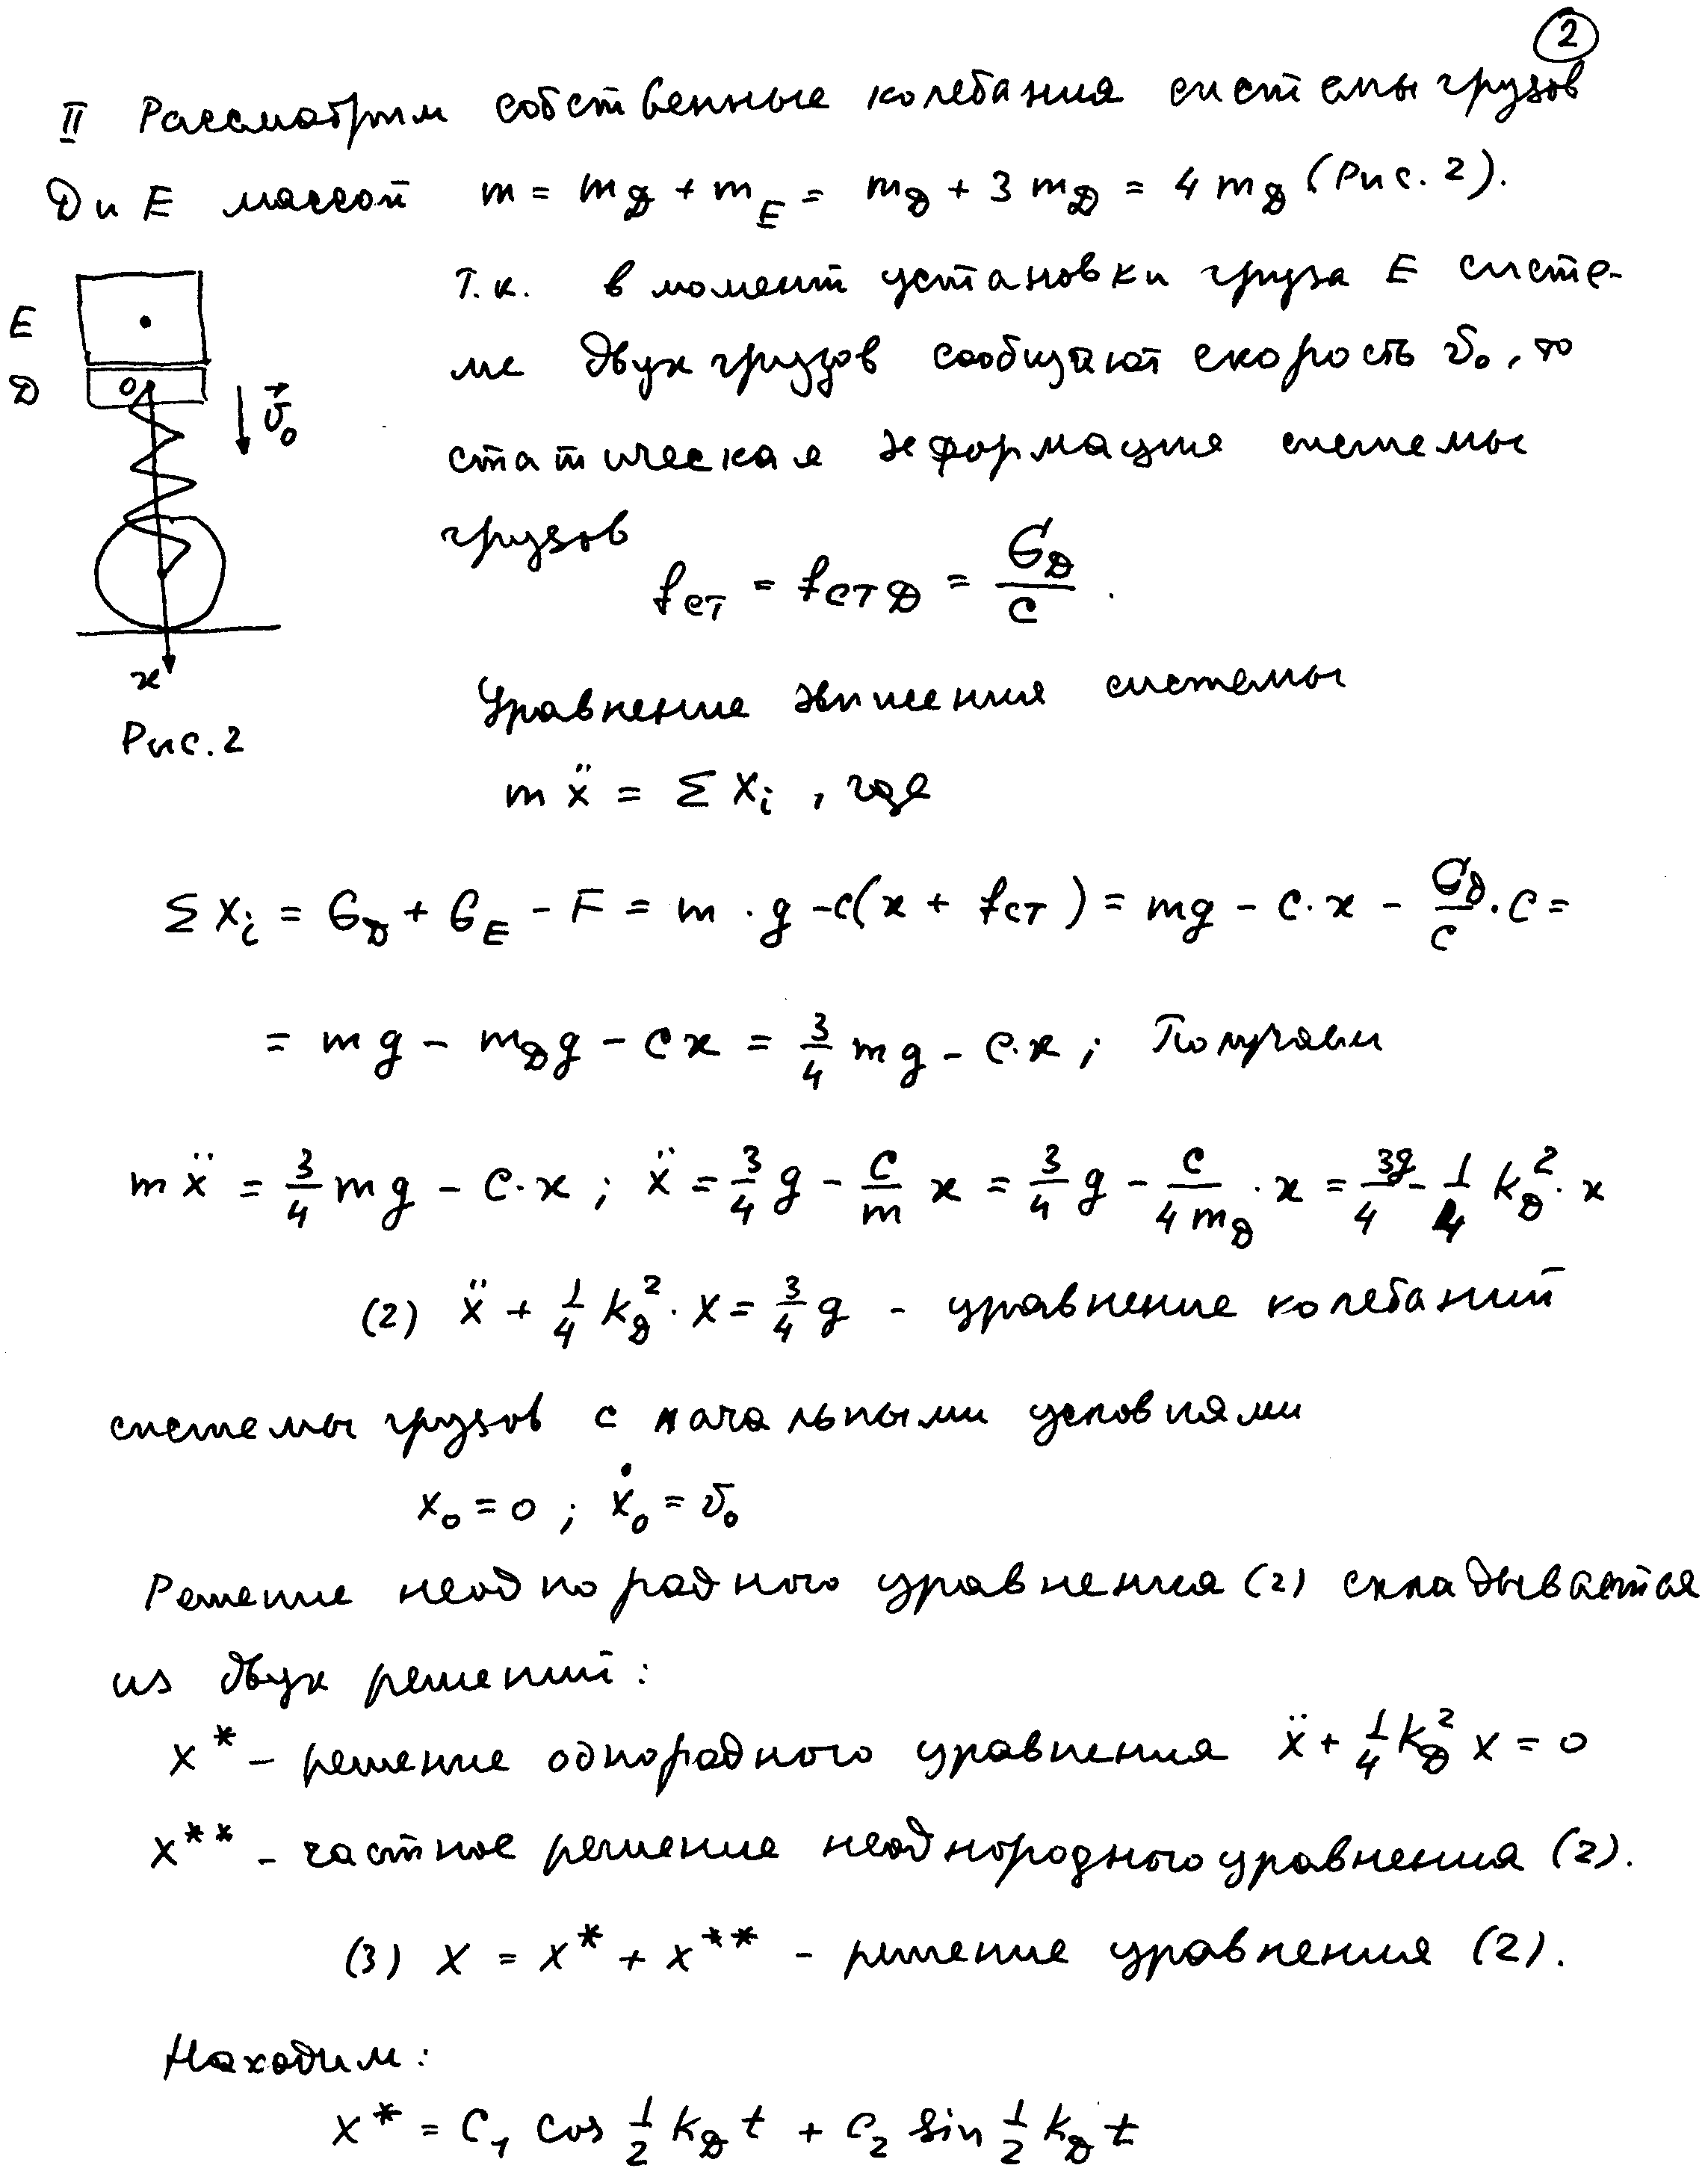 2
II Рассмотрим собственные колебания системы грузов
Д и E массой m = m_Д + m_E = m_Д + 3 m_Д = 4 m_Д (Рис. 2).
т.к. в момент установки груза E систе-
ме двух грузов сообщают скорость v₀, то
статическая деформация системы
грузов
f_ст = f_ст Д = G_Д / c .
E
Д
O
v₀
x
Рис. 2
Уравнение движения системы
m ẍ = Σ X_i , где
Σ X_i = G_Д + G_E − F = m · g − c(x + f_ст) = mg − c · x − G_Д / c · c =
= mg − m_Д g − cx = 3/4 mg − c·x ; Получаем
m ẍ = 3/4 mg − c·x ; ẍ = 3/4 g − c/m x = 3/4 g − c/(4 m_Д) · x = 3g/4 − 1/4 k_Д² · x
(2) ẍ + 1/4 k_Д² · x = 3/4 g - уравнение колебаний
системы грузов с начальными условиями
x₀ = 0 ; ẋ₀ = v₀
Решение неоднородного уравнения (2) складывается
из двух решений:
x* - решение однородного уравнения ẍ + 1/4 k_Д² x = 0
x** - частное решение неоднородного уравнения (2).
(3) x = x* + x** - решение уравнения (2).
Находим:
x* = C₁ cos 1/2 k_Д t + C₂ sin 1/2 k_Д t